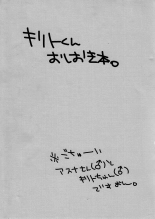 キリトくん
おしおき本。
※ごちゅーい
アスナさん(♂)と
キリトちゃん(♂)
でごす。